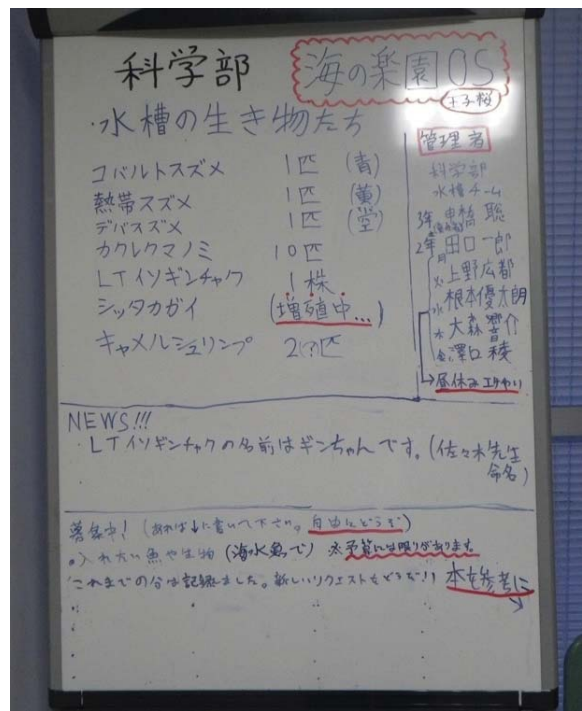 科学部
海の楽園OS
王子桜
・水槽の生き物たち
コバルトスズメ 1匹 (青)
熱帯スズメ 1匹 (黄)
デバスズメ 1匹 (空)
カクレクマノミ 10匹
LTイソギンチャク 1株
シッタカガイ (増殖中...)
キャメルシュリンプ 2(?)匹
管理者
科学部
水槽チーム
3年 聡
2年 田口一郎
月 上野広都
火 根本優太朗
水 大森響介
木 澤口稜
金
→昼休みエサやり
NEWS!!!
・LTイソギンチャクの名前はギンちゃんです。(佐々木先生
命名)
募集中! (あれば↓に書いて下さい。自由にどうぞ)
・入れたい魚や生物 (海水魚で) ※予算には限りがあります。
これまでの分は記録しました。新しいリクエストをどうぞ!! 本を参考に